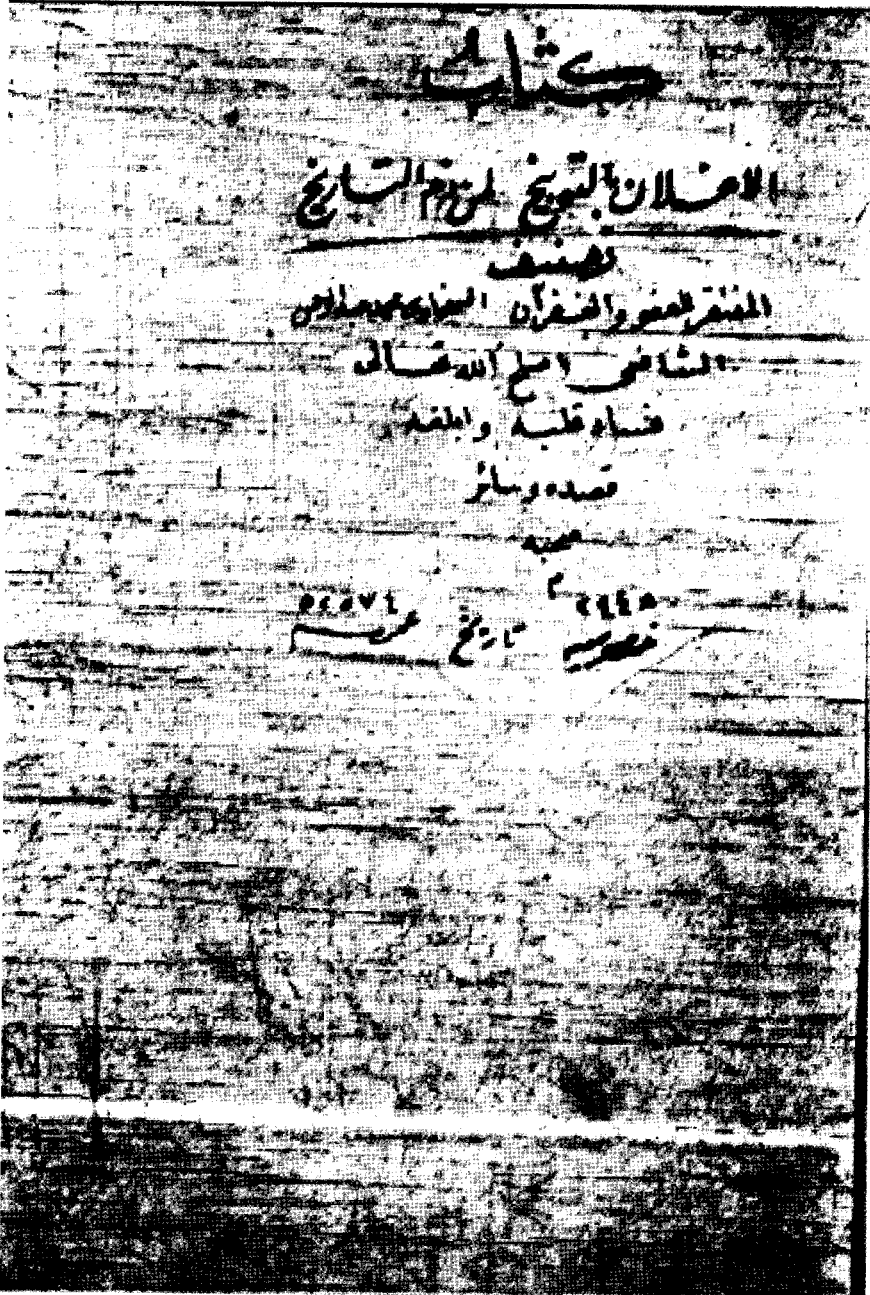 كتاب
الاعلان بالتوبيخ لمن ذم التاريخ
تصنيف
المفتقر للعفو والغفران السخاوي محمد بن عبد الرحمن
الشافعي اصلح الله تعالى
فساد قلبه وابلغه
قصده وسائر
محبيه
م
٢٤٤٥ ٥٤٥٧٤
خصوصيه تاريخ عموميه